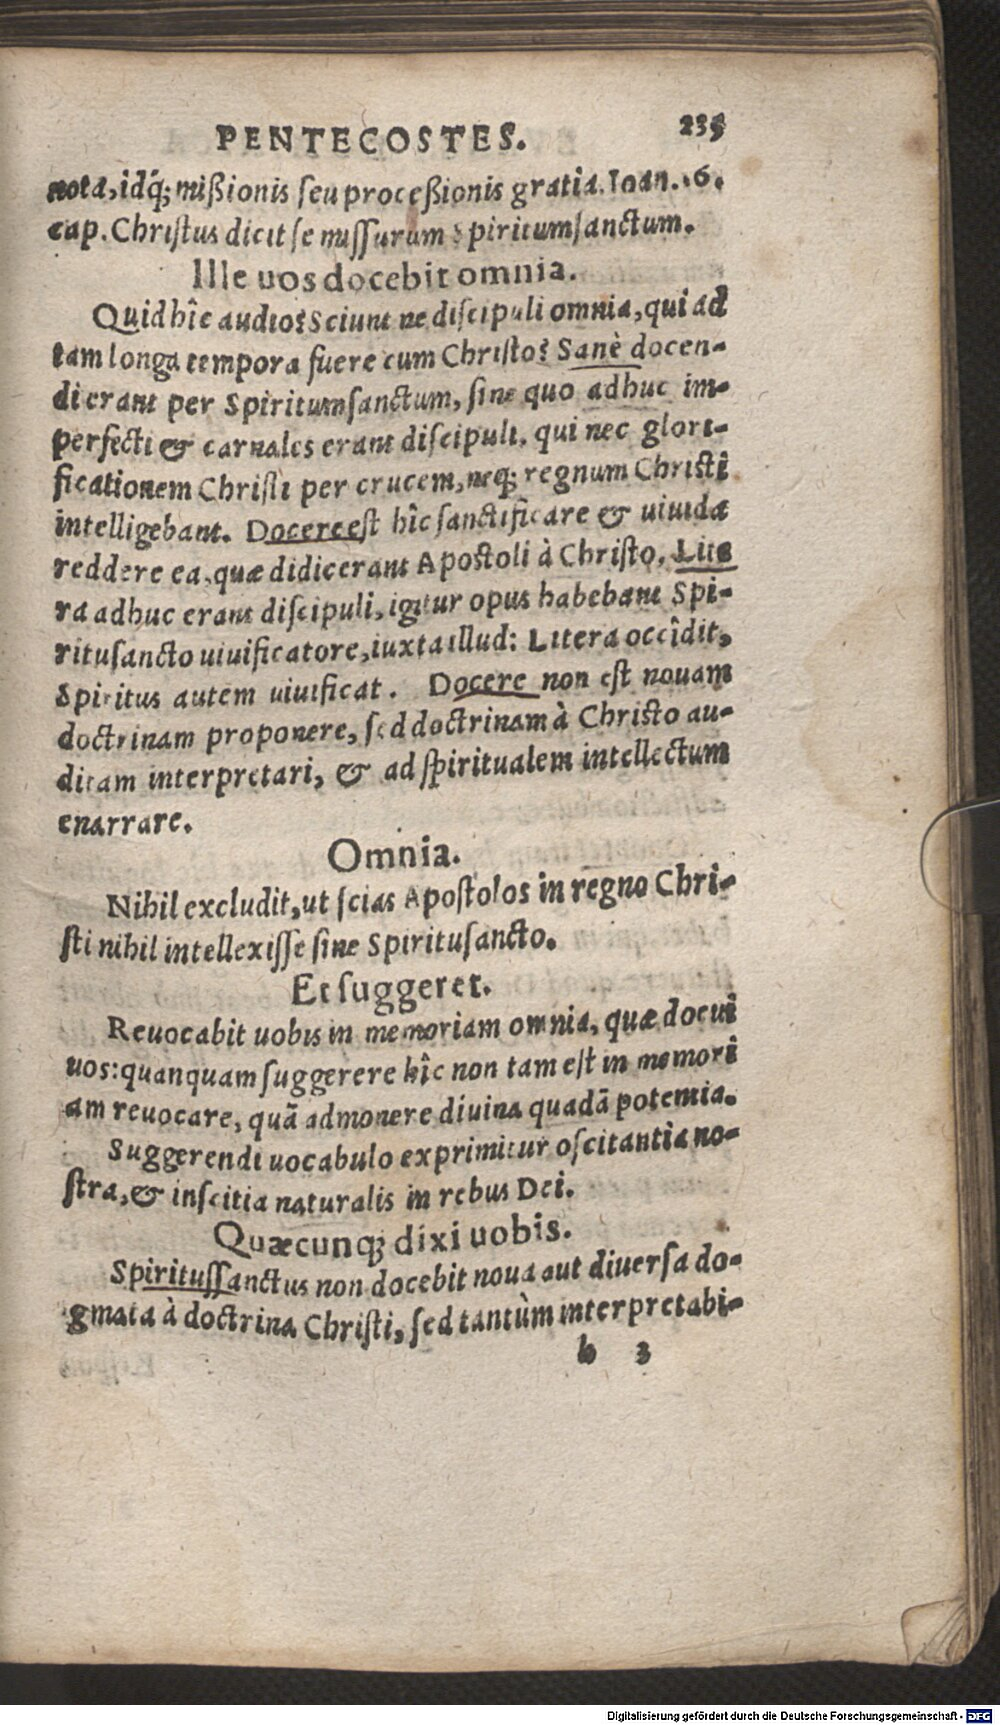 PENTECOSTES. 235
nota, idq́; mißionis seu proceßionis gratia. Ioan. 16.
cap. Christus dicit se missurum Spiritumsanctum.
Ille uos docebit omnia.
Quid hîc audio? Sciunt ne discipuli omnia, qui ad
tam longa tempora fuere cum Christo? Sanè docen-
di erant per Spiritumsanctum, sine quo adhuc im-
perfecti & carnales erant discipuli, qui nec glori-
ficationem Christi per crucem, neq; regnum Christi
intelligebant. Docere est hîc sanctificare & uiuida
reddere ea, quæ didicerant Apostoli à Christo. Lite
ra adhuc erant discipuli, igitur opus habebant Spi-
ritusancto uiuificatore, iuxta illud: Litera occîdit,
Spiritus autem uiuificat. Docere non est nouam
doctrinam proponere, sed doctrinam à Christo au-
ditam interpretari, & ad spiritualem intellectum
enarrare.
Omnia.
Nihil excludit, ut scias Apostolos in regno Chri-
sti nihil intellexisse sine Spiritusancto.
Et suggeret.
Reuocabit uobis in memoriam omnia, quæ docui
uos: quanquam suggerere hîc non tam est in memori
am reuocare, quã admonere diuina quadã potentia.
Suggerendi uocabulo exprimitur oscitantia no-
stra, & inscitia naturalis in rebus Dei.
Quæcunq; dixi uobis.
Spiritussanctus non docebit noua aut diuersa do-
gmata à doctrina Christi, sed tantùm interpretabi-
b 3
Digitalisierung gefördert durch die Deutsche Forschungsgemeinschaft - DFG